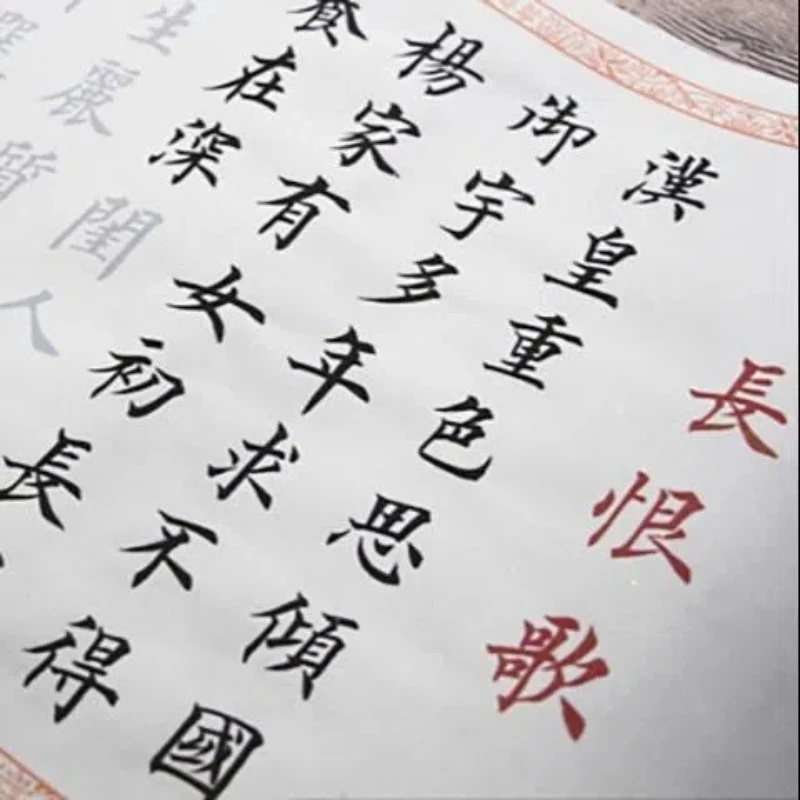 長恨歌
漢皇重色思傾國
御宇多年求不得
楊家有女初長
養在深閨人
生麗質